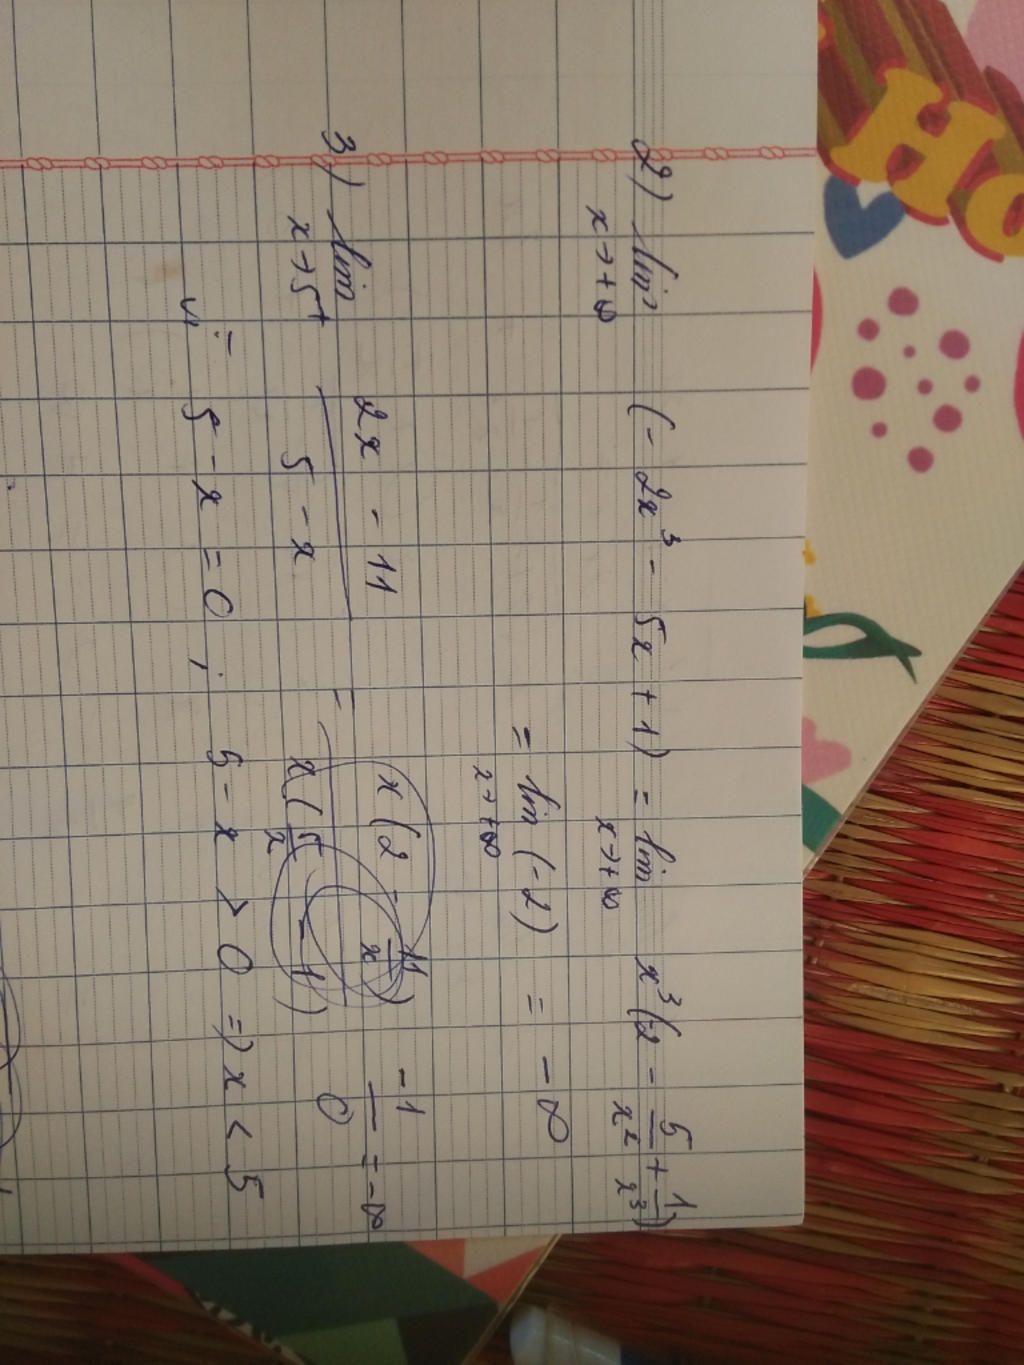 2) lim (-2x³ - 5x + 1) = lim x³(2 - 5/x² + 1/x³)
x→+∞ x→+∞
= lim (-2) = -∞
x→+∞
3) lim 2x - 11 / 5 - x = x(2 - 11/x) / x(5/x - 1) -1/0 = -∞
x→5⁺
5 - x = 0 ; 5 - x > 0 => x < 5
Ho